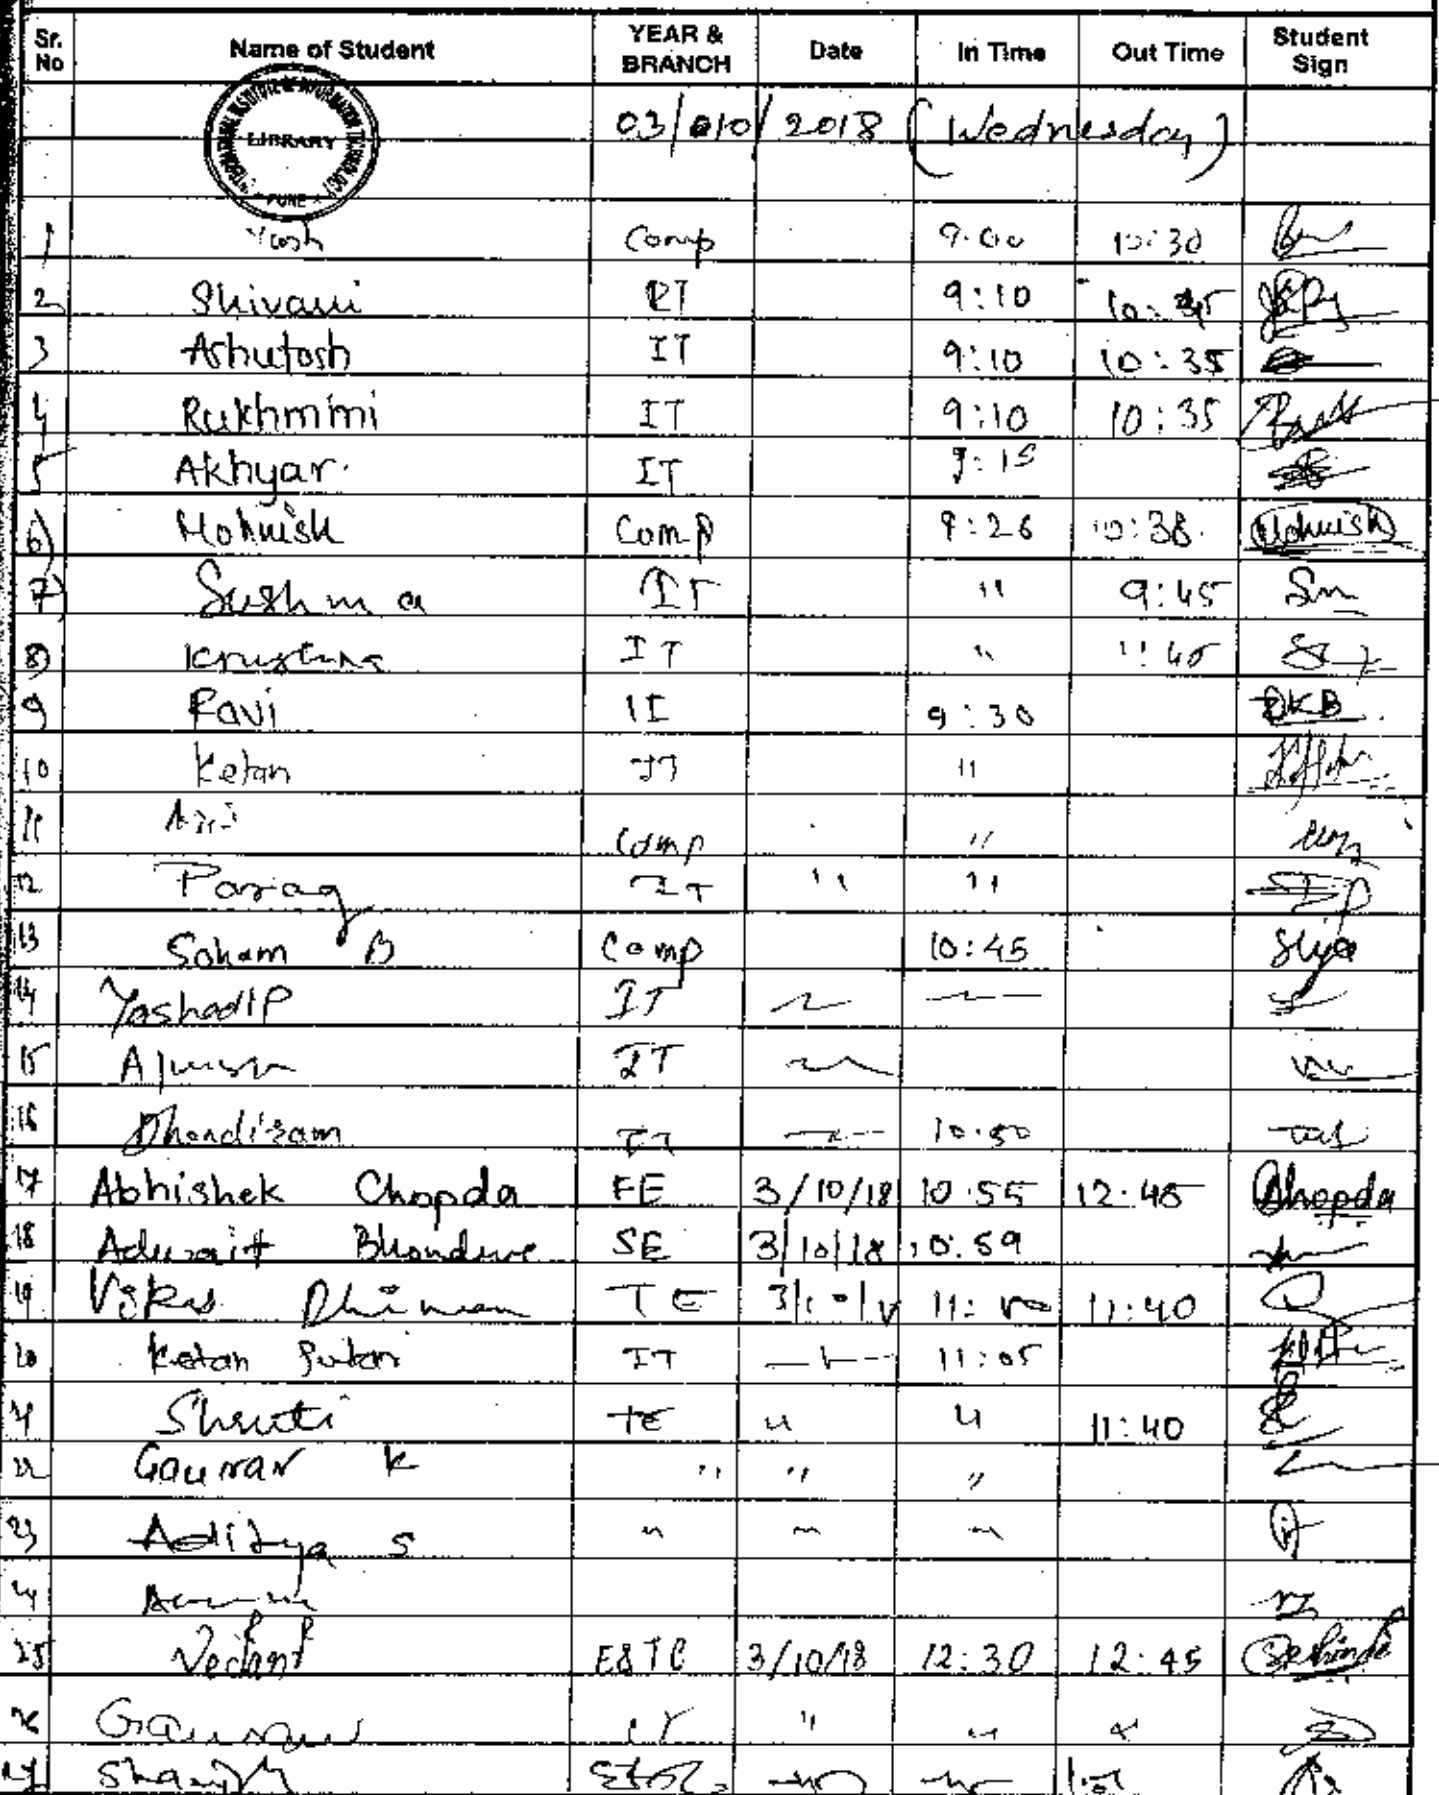 Sr. No Name of Student YEAR & BRANCH Date In Time Out Time Student Sign
INSTITUTE OF INFORMATION TECHNOLOGY
LIBRARY
PUNE
03/10/2018 (Wednesday)
1 Yash Comp 9.00 10:30
2 Shivani IT 9:10
3 Ashutosh IT 9:10 10:35
4 Rukhmini IT 9:10 10:35
5 Akhyar. IT 9:15
6) Mohnish Comp 9:26 10:38. Mohnish
7) Sushma IT " 9:45 Sm
8) Krushna IT " 11:45
9 Ravi IT 9:30
10 Ketan IT "
11 Comp "
12 Parag IT " "
13 Soham B Comp 10:45
14 Yashodip IT
15 IT
16 Dhondiram IT 10.50
17 Abhishek Chopda FE 3/10/18 10.55 12.45 Chopda
18 Adwait Bhondwe SE 3/10/18 10.59
19 Vikas Dhiman TE 11:40
20 Ketan IT 11:05
21 Shruti TE " " 11:40
22 Gaurav K " " "
23 Aditya S " " "
24
25 Vedant E&TC 3/10/18 12:30 12:45
26 Gaurav " " "
27